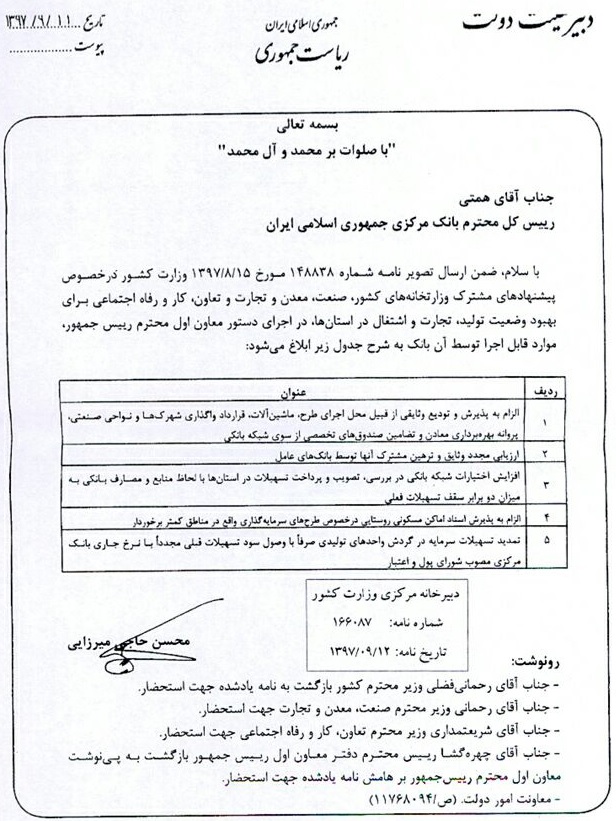 دبیر هیئت دولت
جمهوری اسلامی ایران
ریاست جمهوری
تاریخ ۱۳۹۷/۹/۱۱
پیوست ................
بسمه تعالی
"با صلوات بر محمد و آل محمد"
جناب آقای همتی
رییس کل محترم بانک مرکزی جمهوری اسلامی ایران
با سلام، ضمن ارسال تصویر نامه شماره ۱۴۸۸۳۸ مورخ ۱۳۹۷/۸/۱۵ وزارت کشور درخصوص
پیشنهادهای مشترک وزارتخانه‌های کشور، صنعت، معدن و تجارت و تعاون، کار و رفاه اجتماعی برای
بهبود وضعیت تولید، تجارت و اشتغال در استان‌ها، در اجرای دستور معاون اول محترم رییس جمهور،
موارد قابل اجرا توسط آن بانک به شرح جدول زیر ابلاغ می‌شود:
ردیف عنوان
۱ الزام به پذیرش و تودیع وثایقی از قبیل محل اجرای طرح، ماشین‌آلات، قرارداد واگذاری شهرک‌ها و نواحی صنعتی،
پروانه بهره‌برداری معادن و تضامین صندوق‌های تخصصی از سوی شبکه بانکی
۲ ارزیابی مجدد وثایق و ترهین مشترک آنها توسط بانک‌های عامل
۳ افزایش اختیارات شبکه بانکی در بررسی، تصویب و پرداخت تسهیلات در استان‌ها با لحاظ منابع و مصارف بانکی به
میزان دو برابر سقف تسهیلات فعلی
۴ الزام به پذیرش اسناد اماکن مسکونی روستایی درخصوص طرح‌های سرمایه‌گذاری واقع در مناطق کمتر برخوردار
۵ تمدید تسهیلات سرمایه در گردش واحدهای تولیدی صرفاً با وصول سود تسهیلات قبلی مجدداً با نرخ جاری بانک
مرکزی مصوب شورای پول و اعتبار
دبیرخانه مرکزی وزارت کشور
شماره نامه: ۱۶۶۰۸۷
تاریخ نامه: ۱۳۹۷/۰۹/۱۲
محسن حاجی میرزایی
رونوشت:
- جناب آقای رحمانی‌فضلی وزیر محترم کشور بازگشت به نامه یادشده جهت استحضار.
- جناب آقای رحمانی وزیر محترم صنعت، معدن و تجارت جهت استحضار.
- جناب آقای شریعتمداری وزیر محترم تعاون، کار و رفاه اجتماعی جهت استحضار.
- جناب آقای چهره‌گشا رییس محترم دفتر معاون اول رییس جمهور بازگشت به پی‌نوشت
معاون اول محترم رییس‌جمهور بر هامش نامه یادشده جهت استحضار.
- معاونت امور دولت. (ص/۱۱۷۶۸۰۹۴)